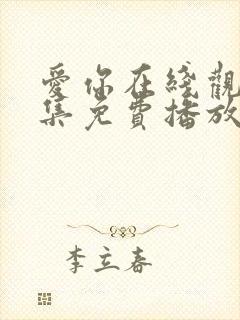 愛你在綫觀
集免費播放
李立春